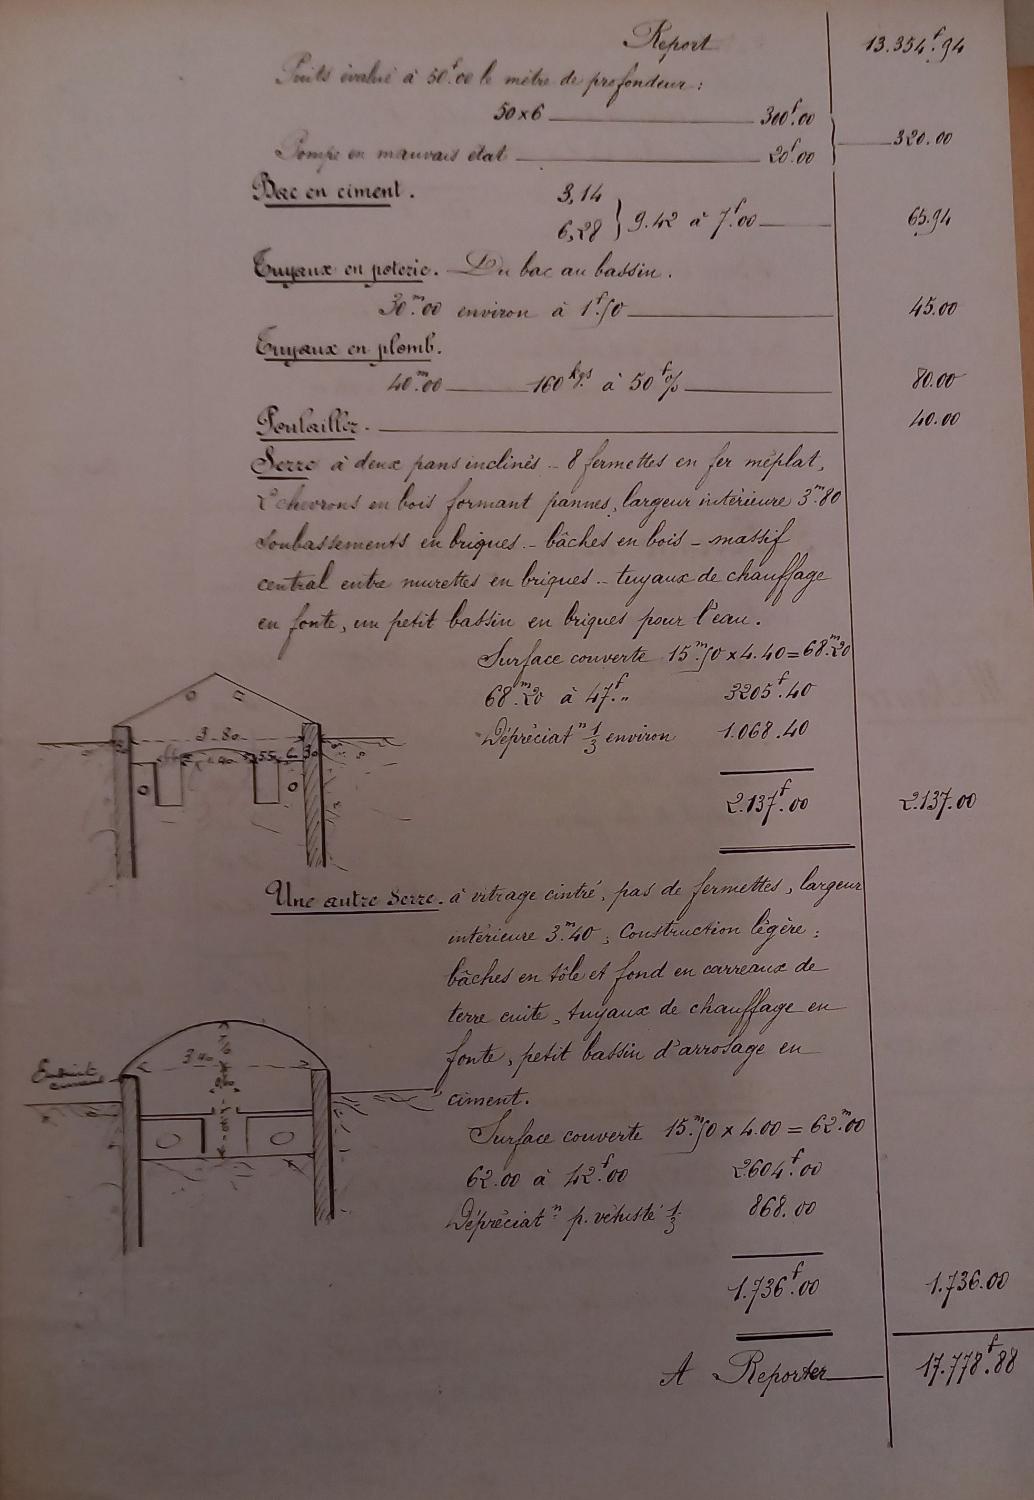 Report 13.354f.94
Puits évalué à 50f.00 le mètre de profondeur :
50x6 300f.00
320.00
Pompe en mauvais état 20f.00
Bac en ciment. 3,14
6,28 } 9.42 à 7f.00 65.94
Tuyaux en poterie. _ Du bac au bassin.
30m.00 environ à 1f.50 45.00
Tuyaux en plomb.
40m.00 160 kgs à 50f % 80.00
Poulailler. 40.00
Serre à deux pans inclinés _ 8 fermettes en fer méplat,
2 chevrons en bois formant pannes, largeur intérieure 3m.80
soubassements en briques _ bâches en bois _ massif
central entre murettes en briques _ tuyaux de chauffage
en fonte, un petit bassin en briques pour l'eau.
Surface couverte 15m.50 x 4.40 = 68m.20
68m.20 à 47f.,, 3205f.40
Dépréciatn 1/3 environ 1.068.40
3.80
2.137f.00 2.137.00
Une autre Serre. à vitrage cintré, pas de fermettes, largeur
intérieure 3m.40, Construction légère ;
bâches en tôle et fond en carreaux de
terre cuite, tuyaux de chauffage en
fonte, petit bassin d'arrosage en
ciment.
3.40
Enduit
ciment
Surface couverte 15m.50 x 4.00 = 62m.00
62.00 à 42f.00 2604f.00
Dépréciatn p. vétusté 1/3 868.00
1.736f.00 1.736.00
A Reporter 17.778f.88